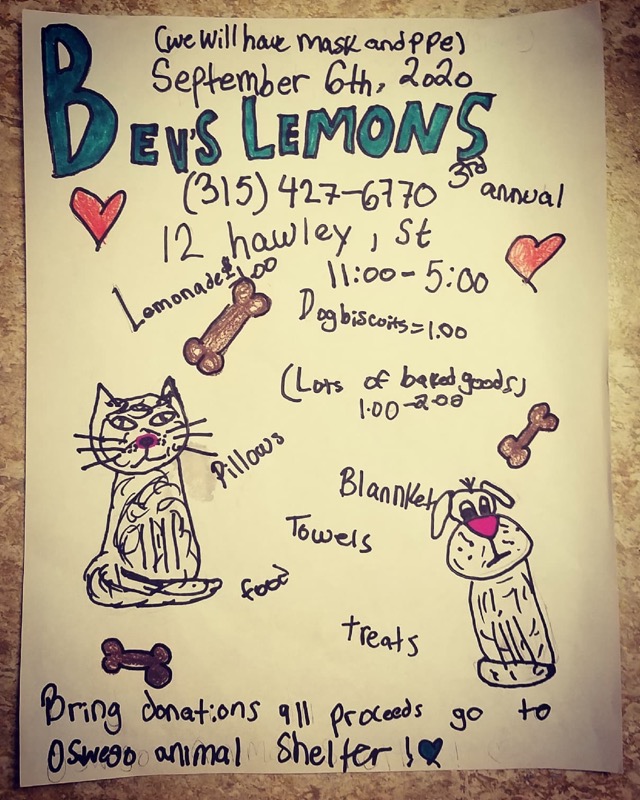 (we will have mask and PPe)
September 6th, 2020
BEV'S LEMONS
3rd annual
(315) 427-6770
12 hawley, St
11:00-5:00
Lemonade = 1.00
Dogbiscuits=1.00
(Lots of baked goods)
1.00-2.00
Pillows
Blannket
Towels
food
treats
Bring donations all proceeds go to
Oswego animal Shelter!